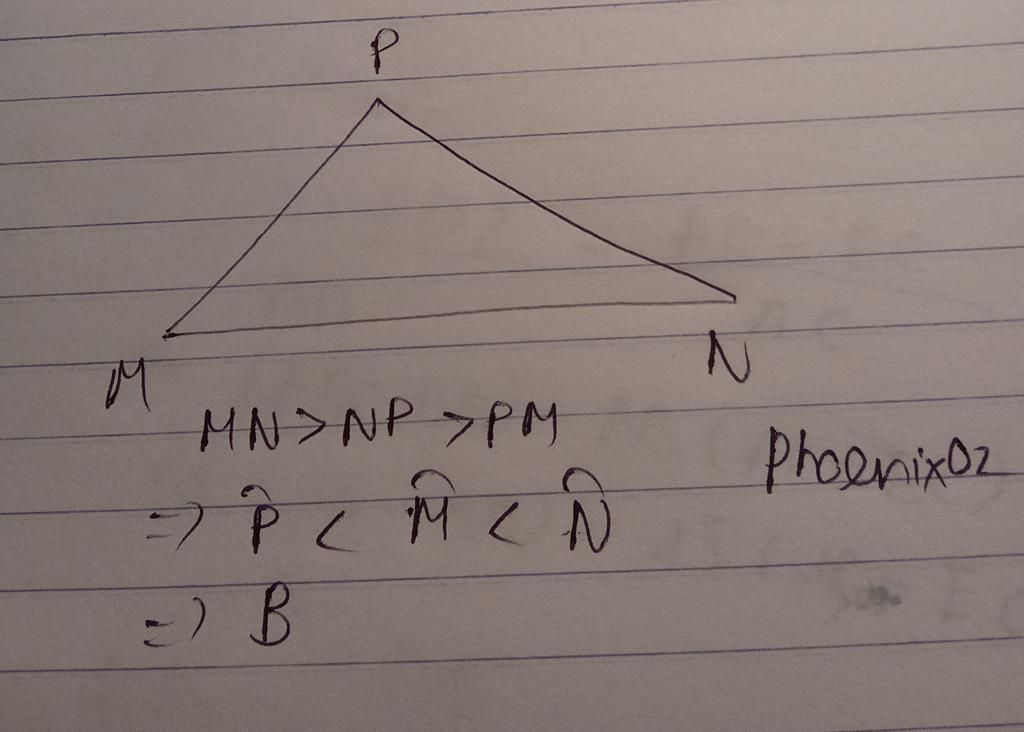 P
M
N
MN > NP > PM
Phoenix02
=> P̂ < M̂ < N̂
=> B